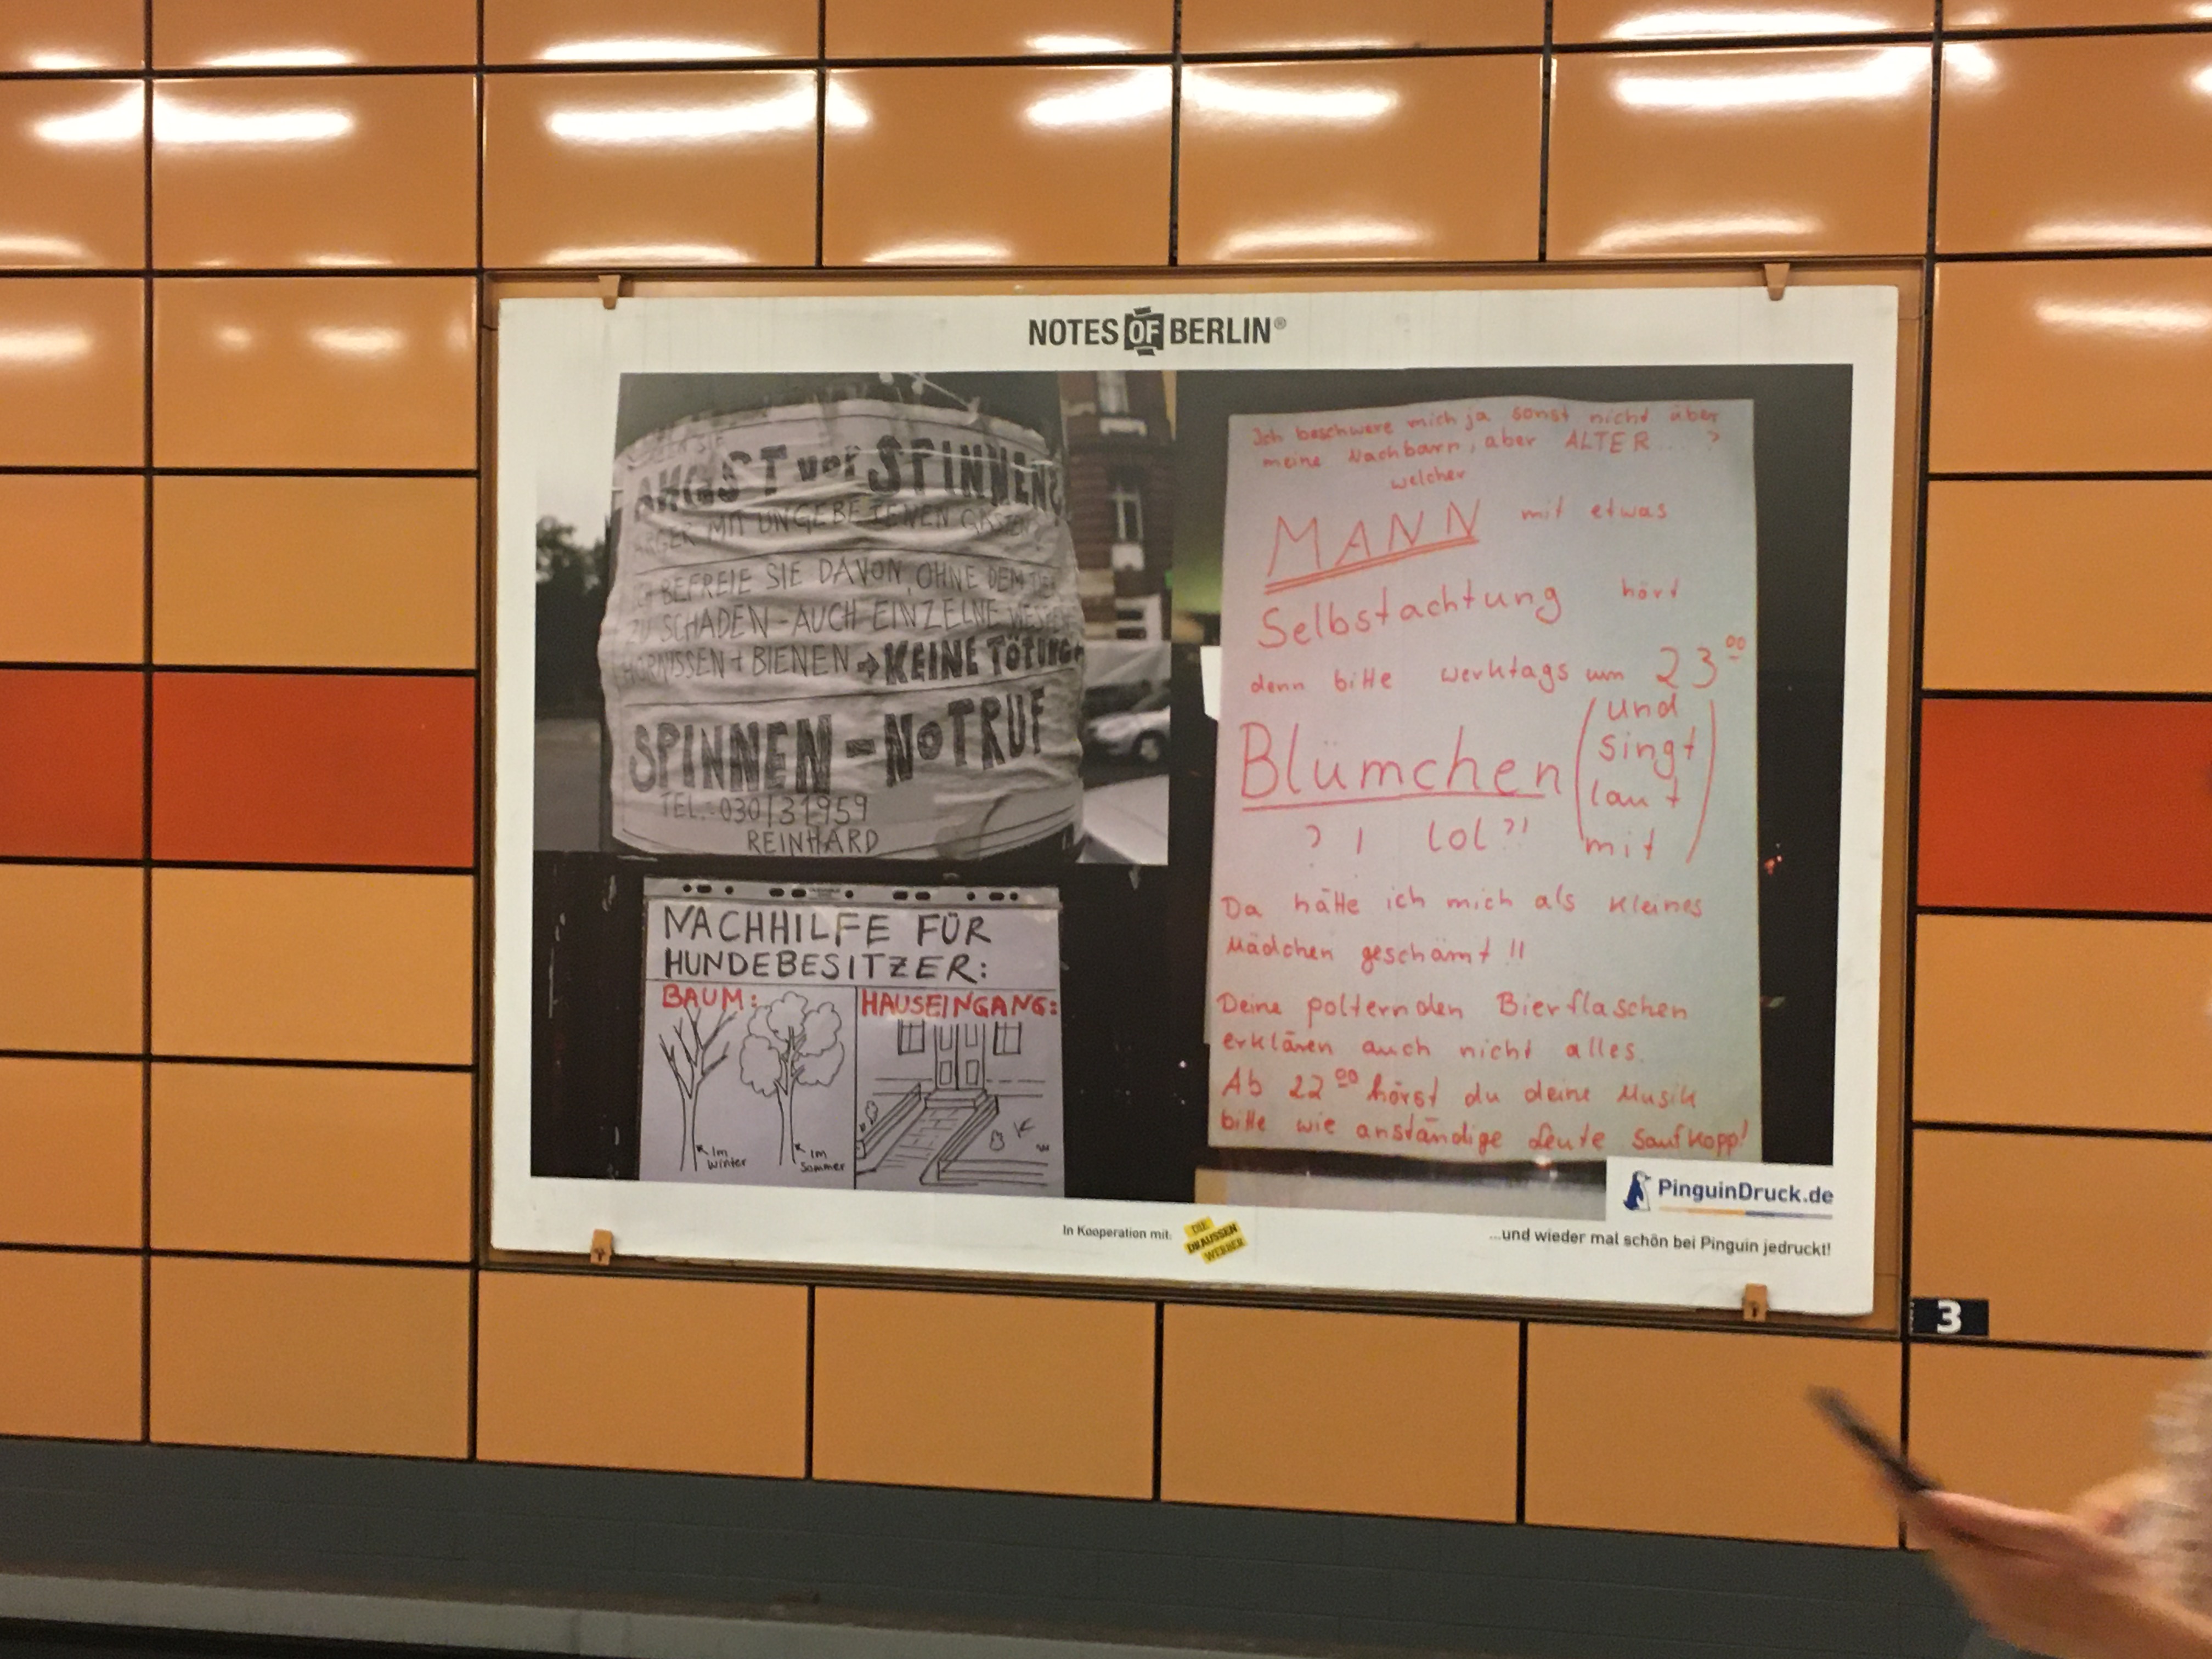 NOTES OF BERLIN®
ANGST vor SPINNEN?
ÄRGER MIT UNGEBETENEN GÄSTEN
ICH BEFREIE SIE DAVON, OHNE DEM TIER
ZU SCHADEN - AUCH EINZELNE WESPEN
HORNISSEN + BIENEN → KEINE TÖTUNG
SPINNEN - NOTRUF
TEL.: 030/31959
REINHARD
NACHHILFE FÜR
HUNDEBESITZER:
BAUM:
HAUSEINGANG:
Im
Winter
Im
Sommer
Ich beschwere mich ja sonst nicht über
meine Nachbarn, aber ALTER... ?
welcher
MANN mit etwas
Selbstachtung hört
denn bitte werktags um 23⁰⁰
Blümchen (und
singt
laut
mit)
? ! lol ?!
Da hätte ich mich als kleines
Mädchen geschämt !!
Deine polternden Bierflaschen
erklären auch nicht alles.
Ab 22⁰⁰ hörst du deine Musik
bitte wie anständige Leute Saufkopp!
PinguinDruck.de
In Kooperation mit:
DIE
DRAUSSEN
WERBER
...und wieder mal schön bei Pinguin jedruckt!
3